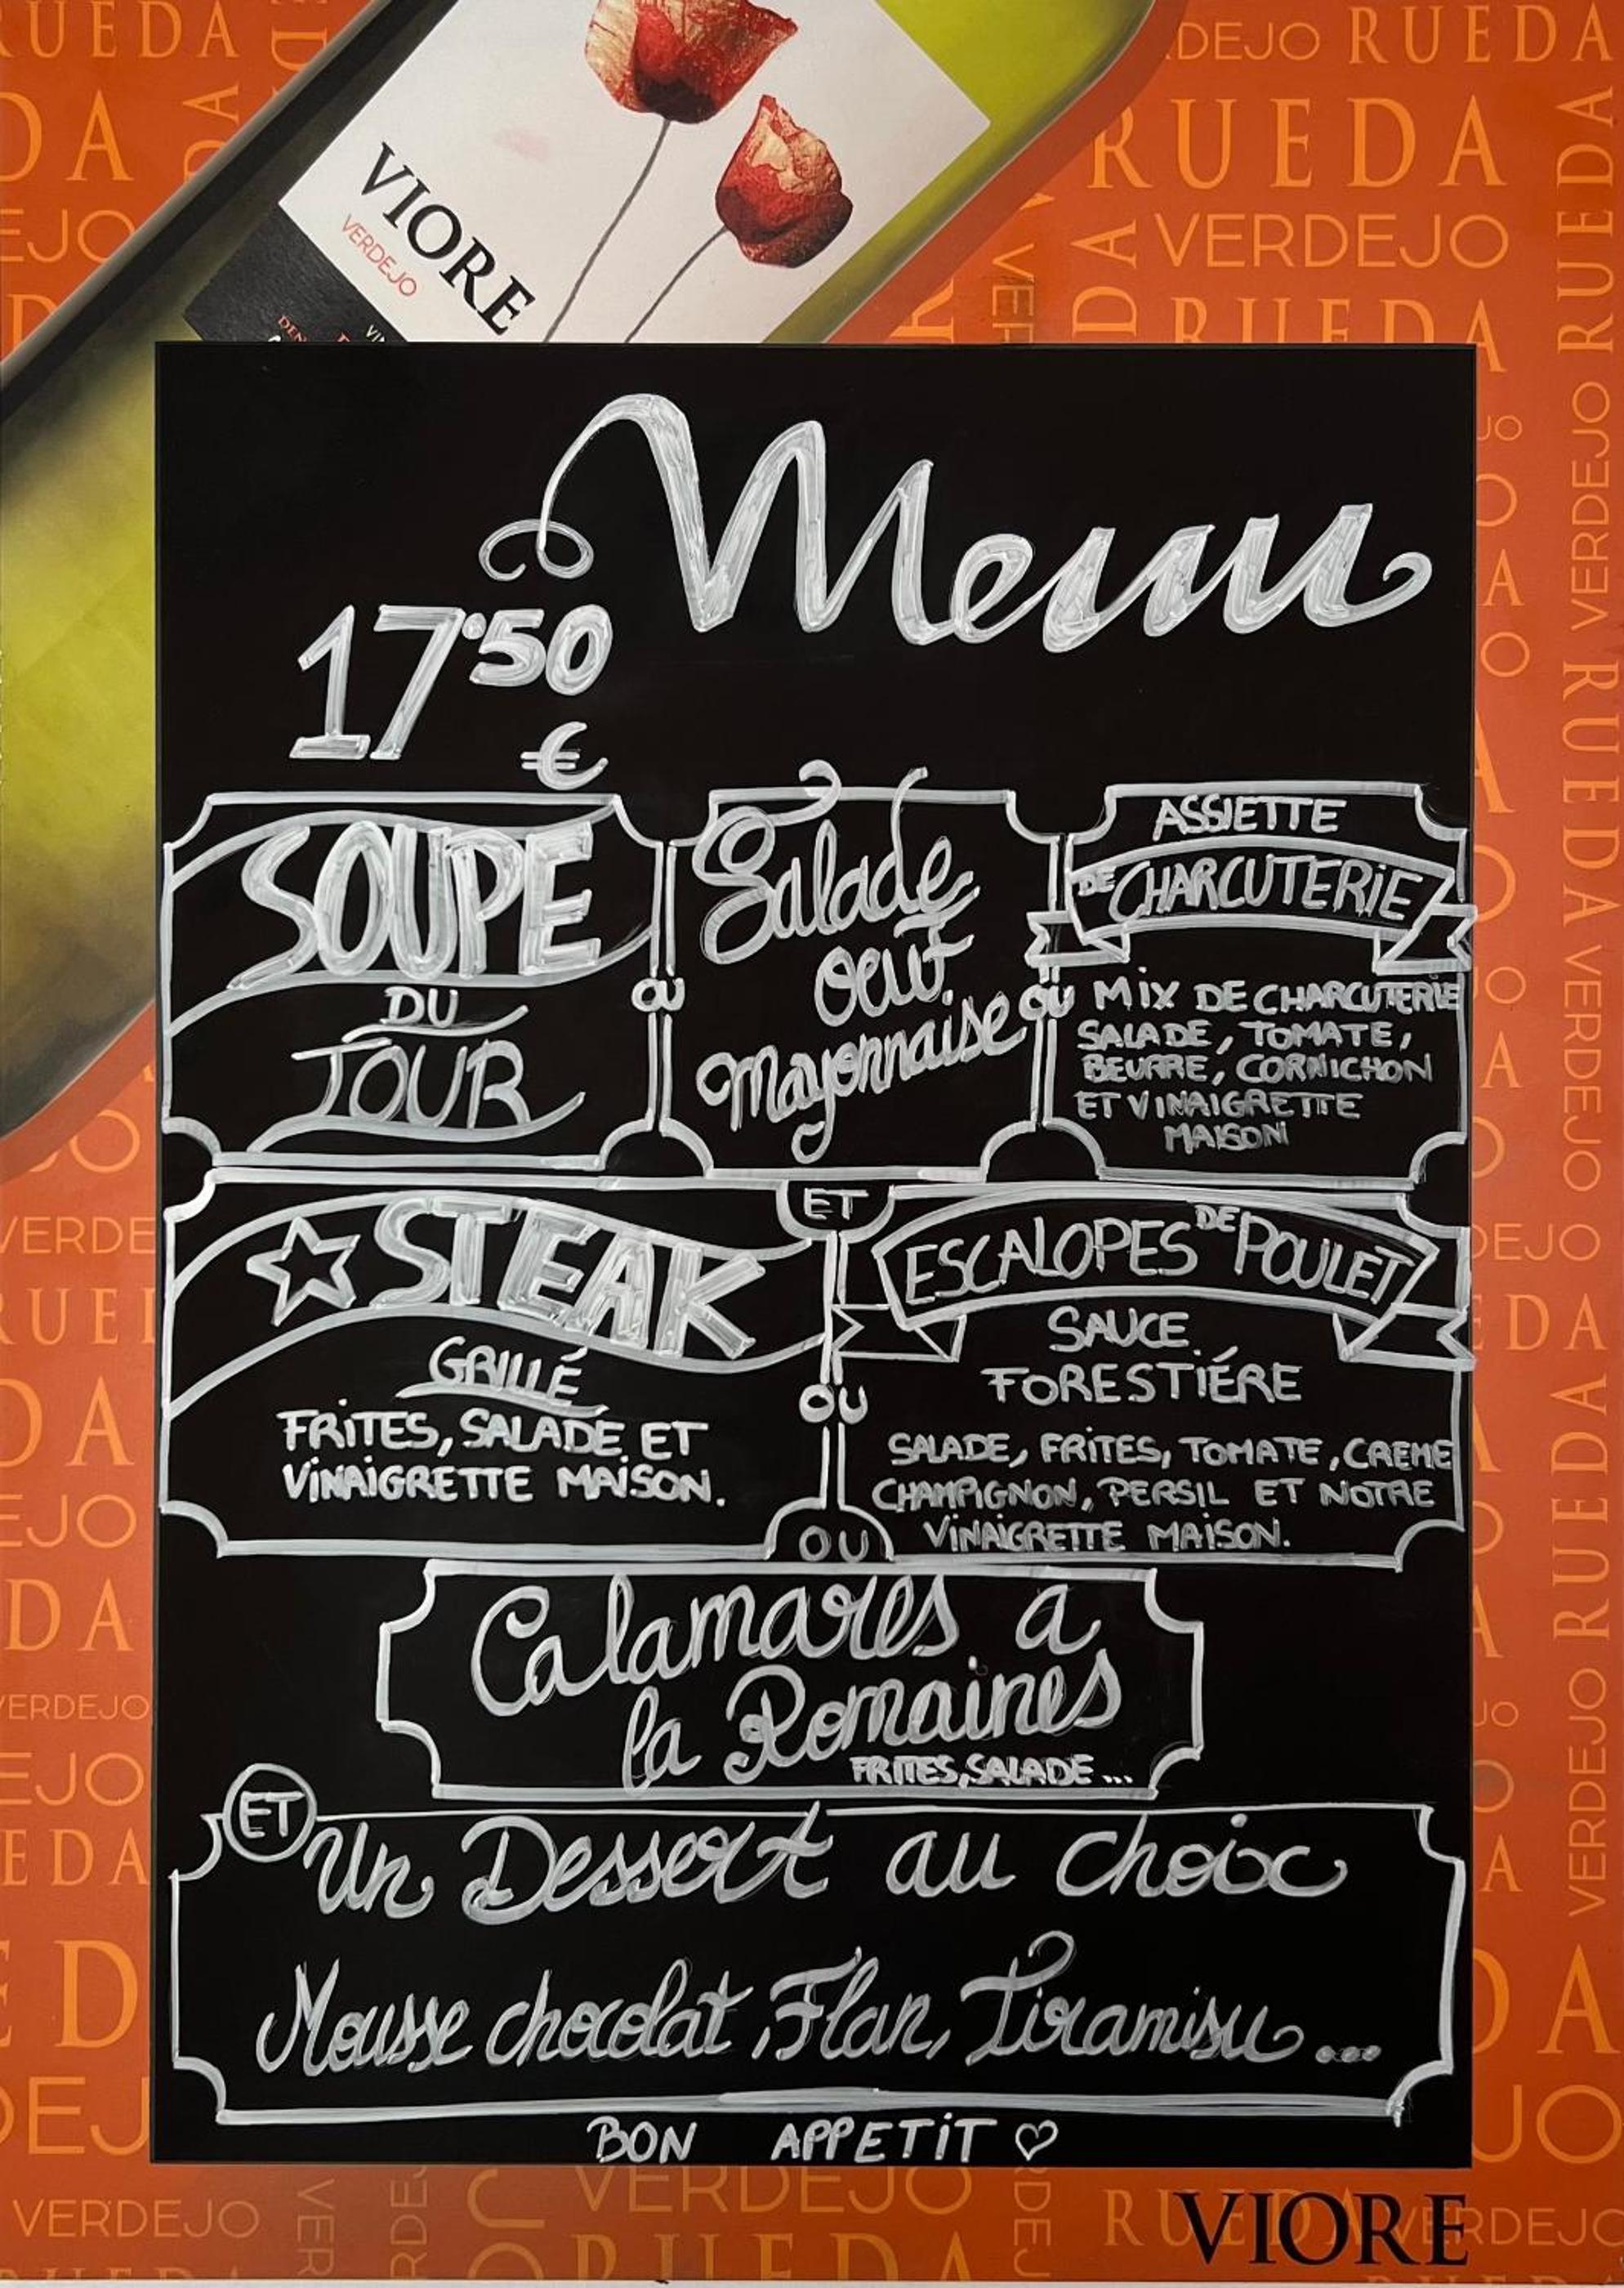 VIORE
VERDEJO
Menu
17'50
€
SOUPE
DU
JOUR
OU
Salade
oeuf
Mayonnaise
OU
ASSIETTE
DE CHARCUTERIE
MIX DE CHARCUTERIE
SALADE, TOMATE,
BEURRE, CORNICHON
ET VINAIGRETTE
MAISON
ET
STEAK
GRILLÉ
FRITES, SALADE ET
VINAIGRETTE MAISON.
OU
ESCALOPES DE POULET
SAUCE
FORESTIÉRE
SALADE, FRITES, TOMATE, CREME
CHAMPIGNON, PERSIL ET NOTRE
VINAIGRETTE MAISON.
OU
Calamares a
la Romaines
FRITES, SALADE ...
ET
Un Dessert au choix
Mousse chocolat, Flan, Tiramisu ...
BON APPETIT ♡
VIORE
RUEDA
VERDEJO